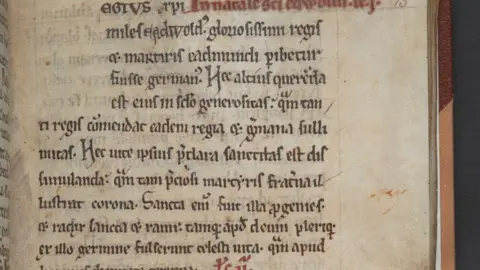 EGIUS xp̄i In natale sc̄i eadwoldi
miles eadwold' gloriosissimi regis
& martiris eadmundi p̄ibetur
fuisse german'. Nec altius querenda
est eius in sc̄lo generositas: qm̄ tan
ti regis cōmendat eadem regia & ḡmana subli
mitas. Nec uite ipsius p̄clara sanctitas est dis
simulanda: quam tam p̄ciosi martyris fr̄atna il
lustrat corona. Sancta eni fuit illa p̄genies.
& radix sancta & rami: tamq; apd̄ deum pleriq;
ex illo germine fulserunt celesti uita. qm̄ apud